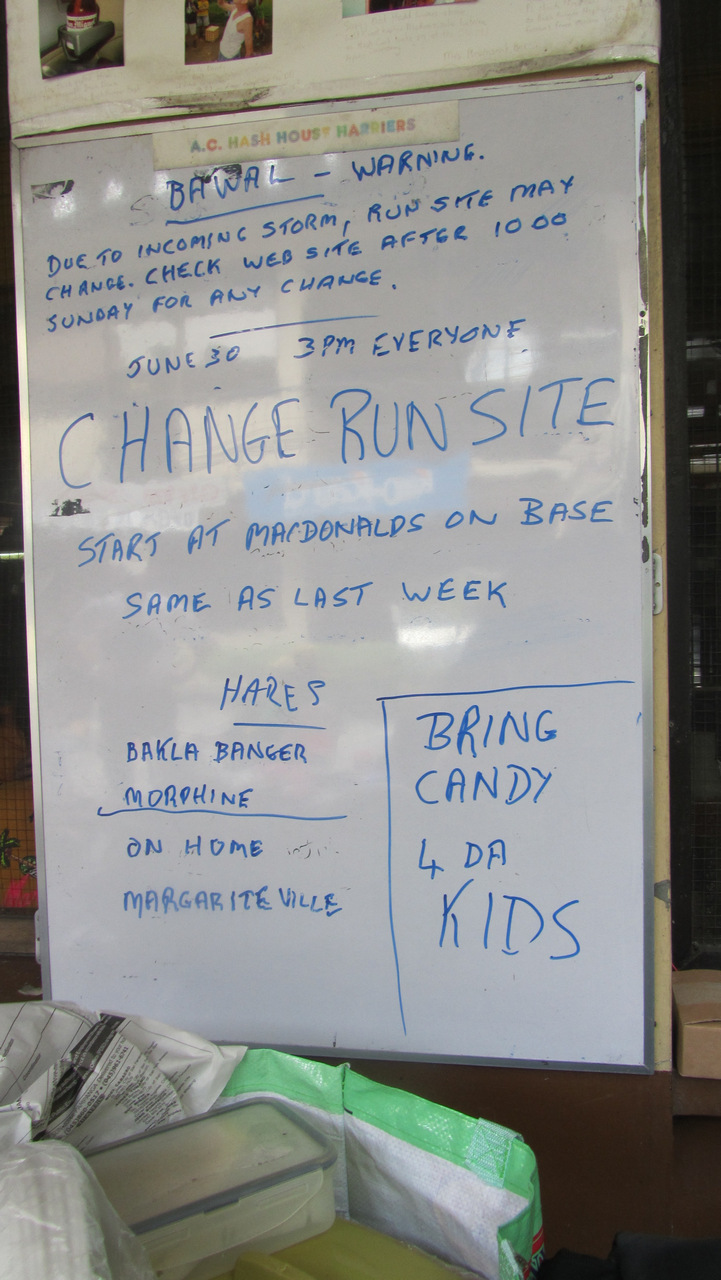 A.C. HASH HOUSE HARRIERS
BAWAL - WARNING.
DUE TO INCOMING STORM, RUN SITE MAY
CHANGE. CHECK WEB SITE AFTER 10 00
SUNDAY FOR ANY CHANGE.
JUNE 30 3PM EVERYONE
CHANGE RUN SITE
START AT MACDONALDS ON BASE
SAME AS LAST WEEK
HARES
BAKLA BANGER
MORPHINE
ON HOME
MARGARITEVILLE
BRING
CANDY
4 DA
KIDS